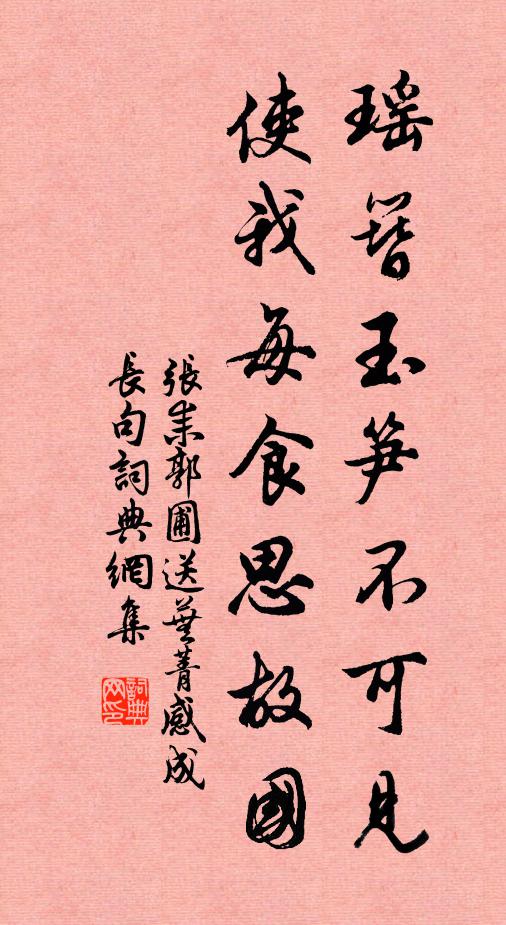 瑶簪玉笋不可見
使我每食思故國
張耒郭圃送蕪菁感成
長句詞典網集
詞典
网印